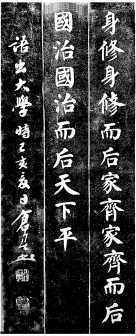 身修身修而后家齊家齊而后
國治國治而后天下平
語出大學時己亥夏日